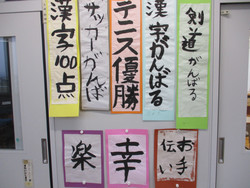 剣道がんばる
漢字がんばる
テニス優勝
サッカーがんば
漢字100点
お手伝い
幸
楽